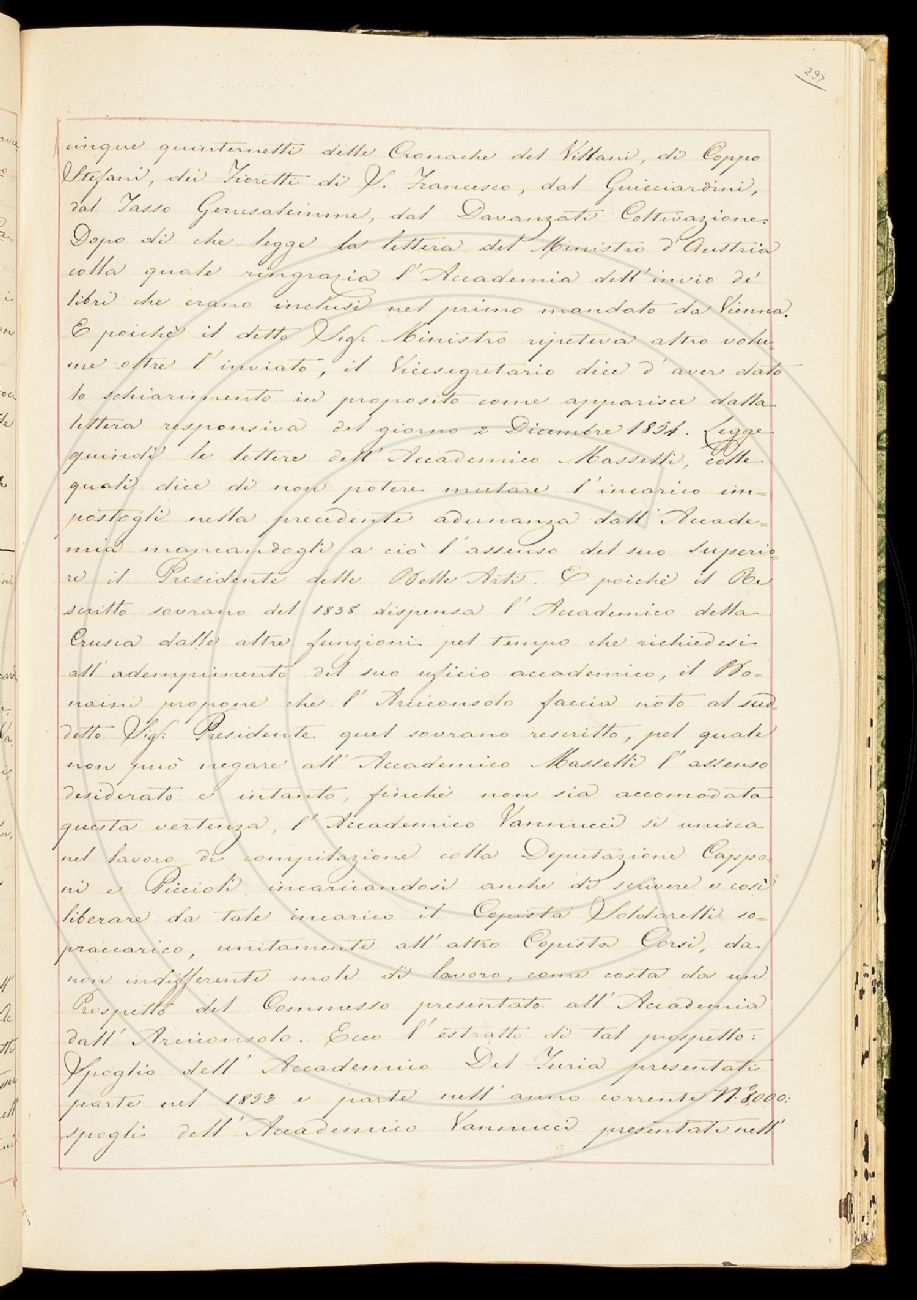 297
cinque quinternetti delle Cronache del Villani, di Coppo
Stefani, dei Fioretti di S. Francesco, dal Guicciardini,
dal Tasso Gerusalemme, dal Davanzati Coltivazione.
Dopo di che legge la lettera del Ministro d'Austria
colla quale ringrazia l'Accademia dell'invio de'
libri che erano inclusi nel primo mandato da Vienna.
E poichè il detto Sig. Ministro ripeteva altro volu-
me oltre l'inviato, il Vicesegretario dice d'aver dato
lo schiarimento in proposito come apparisce dalla
lettera responsiva del giorno 2 Dicembre 1854. Legge
quindi le lettere dell'Accademico Masselli, colle
quali dice di non potere mutare l'incarico im-
postogli nella precedente adunanza dall'Accade-
mia mancandogli a ciò l'assenso del suo superio-
re il Presidente delle Belle Arti. E poichè il Re
scritto sovrano del 1838 dispensa l'Accademico della
Crusca dalle altre funzioni pel tempo che richiedesi
all'adempimento del suo uficio accademico, il Bo-
naini propone che l'Arciconsolo faccia noto al sud-
detto Sig. Presidente quel sovrano rescritto, pel quale
non può negare all'Accademico Masselli l'assenso
desiderato e intanto, finchè non sia accomodata
questa vertenza, l'Accademico Vannucci si unisca
nel lavoro di compilazione colla Deputazione Cappo
ni e Piccioli, incaricandosi anche di scrivere e così
liberare da tale incarico il Copista Soldarelli so-
praccarico, unitamente all'altro Copista Corsi, da
non indifferente mole di lavoro, come costa da un
Prospetto del Commesso presentato all'Accademia
dall'Arciconsolo. Ecco l'estratto di tal prospetto:
Spoglio dell'Accademico Del Furia presentati
parte nel 1853 e parte nell'anno corrente N.º 8000:
spogli dell'Accademico Vannucci presentati nell'